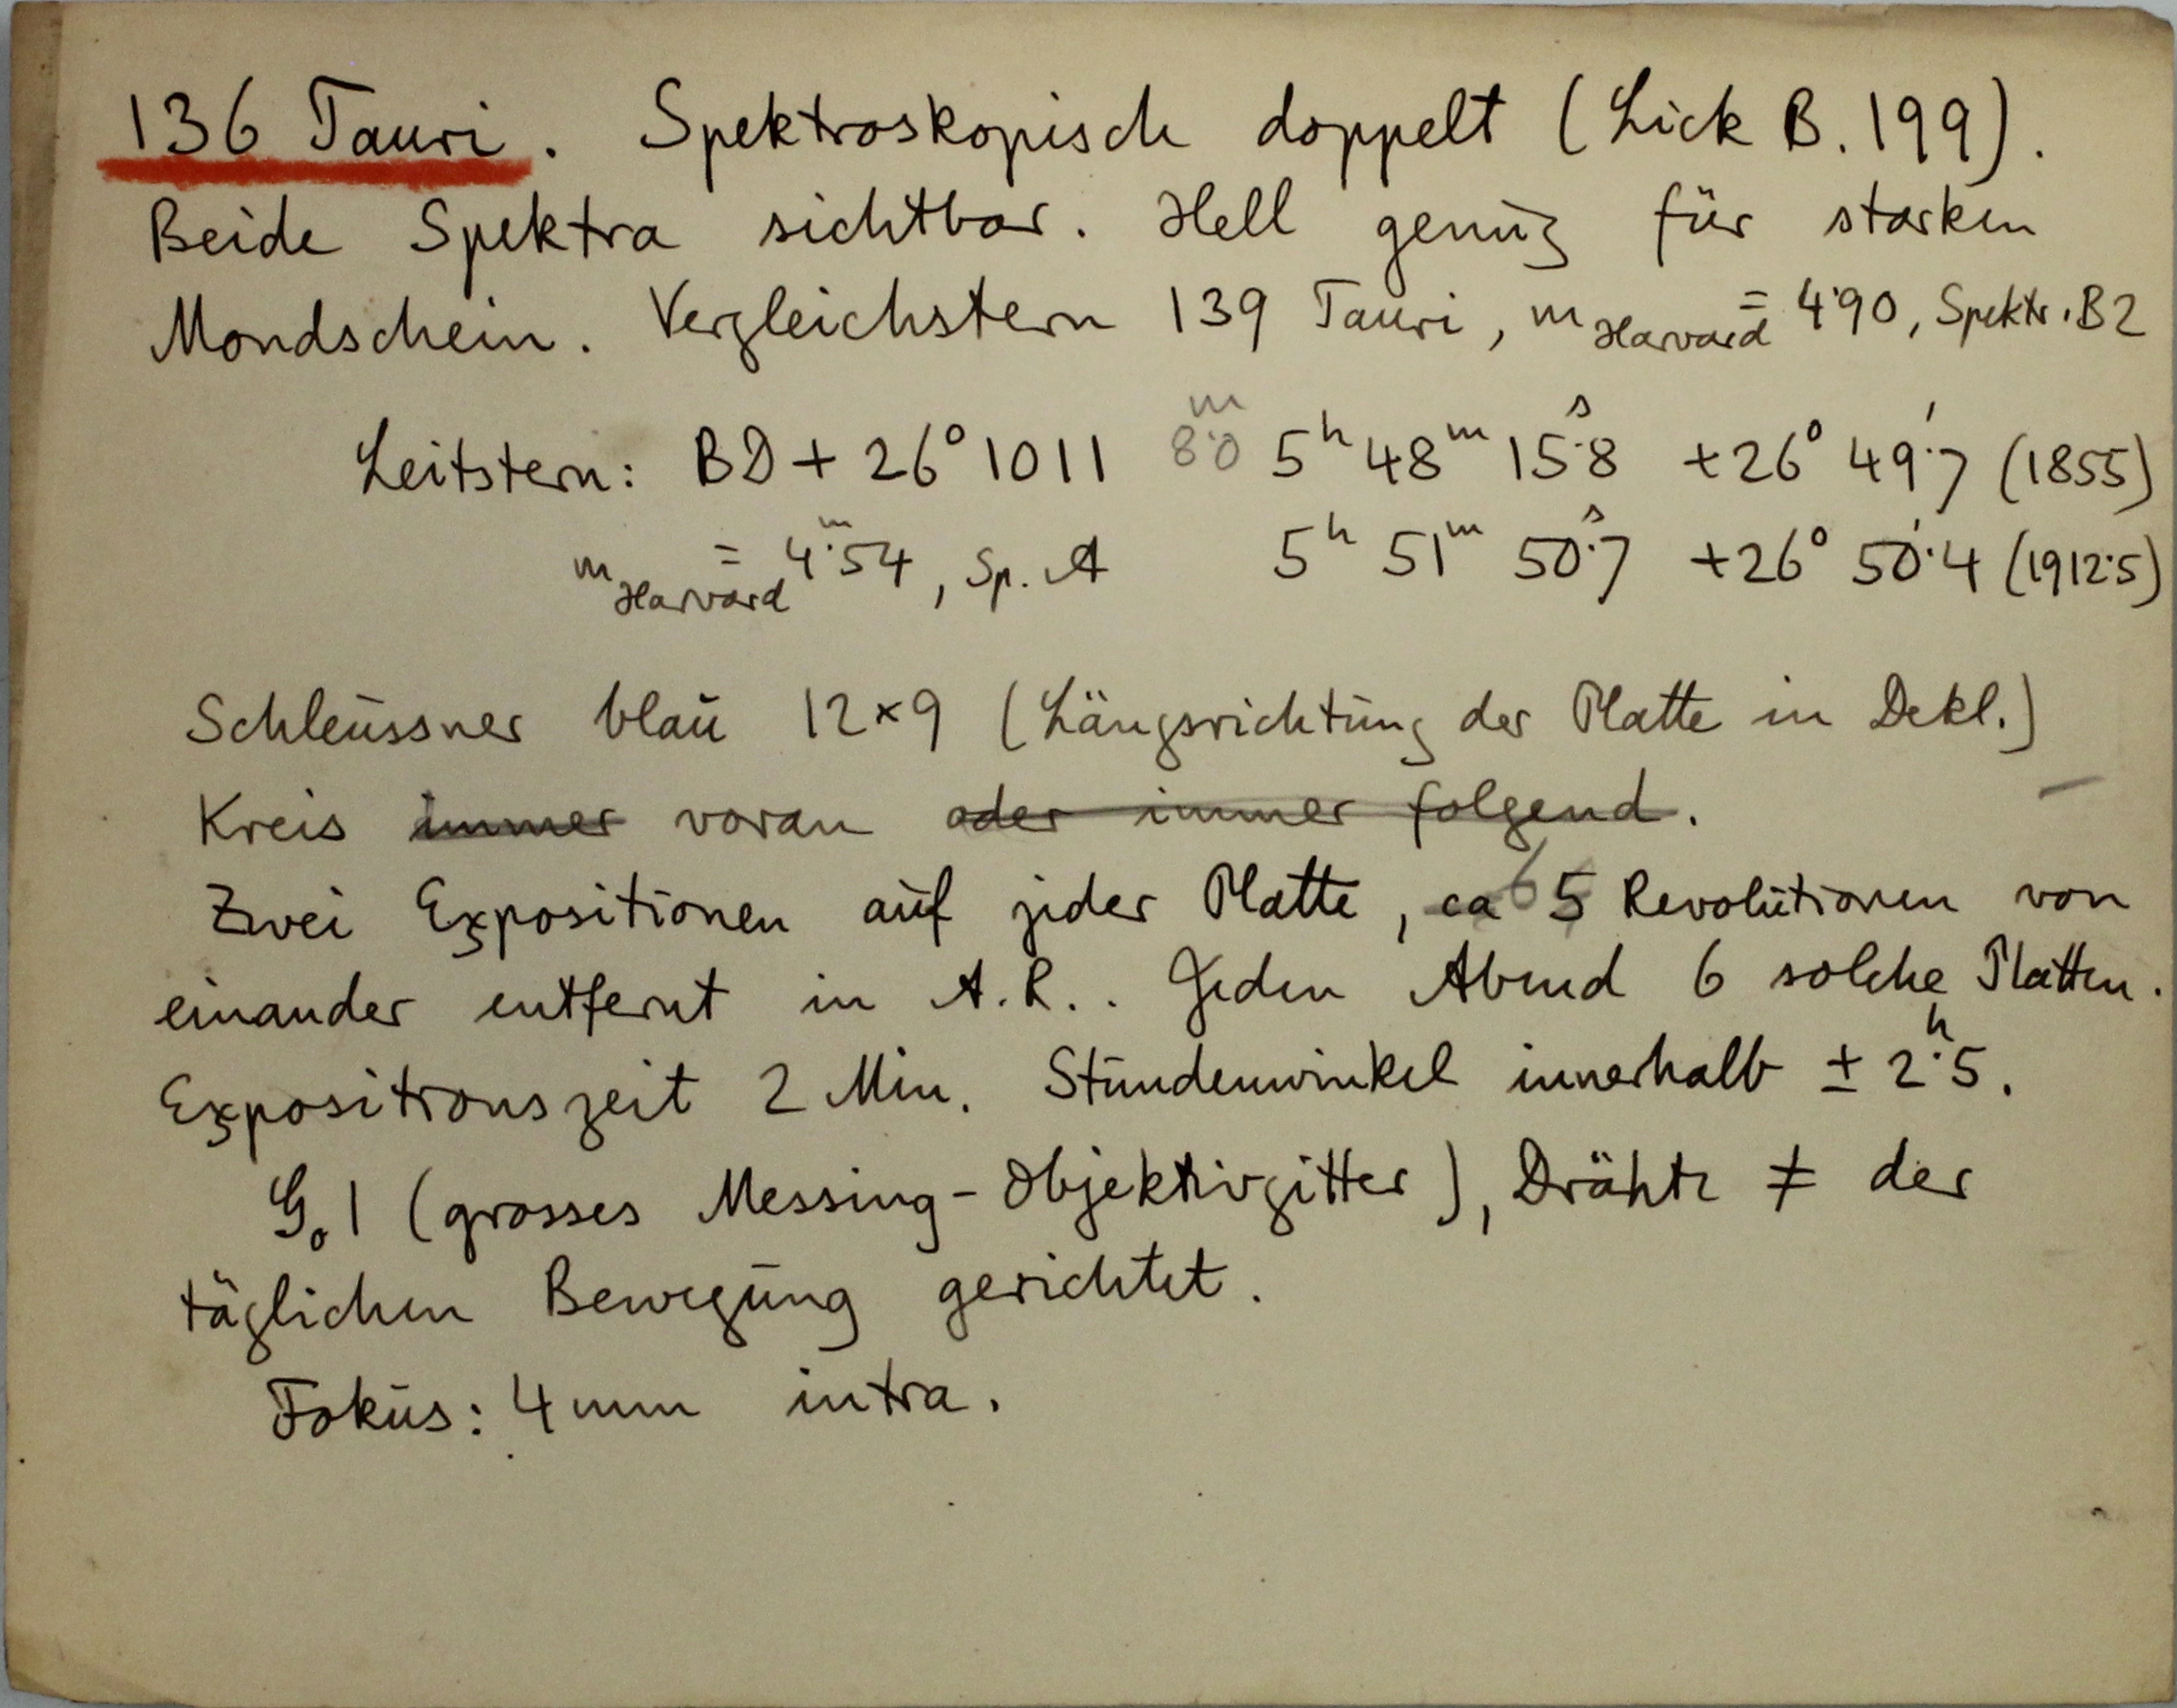 136 Tauri. Spektroskopisch doppelt (Lick B. 199).
Beide Spektra sichtbar. Hell genug für starken
Mondschein. Vergleichstern 139 Tauri, m Harvard = 4.90, Spektr. B2
Leitstern: BD + 26° 1011 8.0ᵐ 5ʰ 48ᵐ 15.ˢ8 +26° 49.′7 (1855)
m Harvard = 4.ᵐ54, Sp. A 5ʰ 51ᵐ 50.ˢ7 +26° 50.′4 (1912.5)
Schleussner blau 12×9 (Längsrichtung der Platte in Dekl.)
Kreis immer voran oder immer folgend.
Zwei Expositionen auf jeder Platte, ca 6 5 Revolutionen von
einander entfernt in A.R.. Jeden Abend 6 solche Platten.
Expositionszeit 2 Min. Stundenwinkel innerhalb ± 2.ʰ5.
G₀1 (grosses Messing-Objektivgitter), Drähte ≠ der
täglichen Bewegung gerichtet.
Fokus: 4 mm intra.